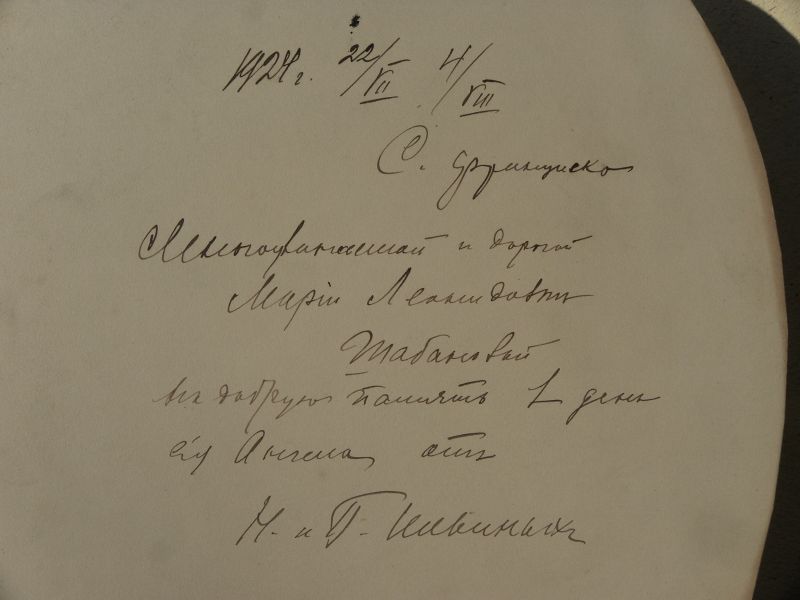 1924 г. 22/VII 4/VIII
С. Франциско
Многоуважаемой и дорогой
Маріи Леонидовнѣ
Шабановой
на добрую память в день
ея Ангела отъ
Н. и П.